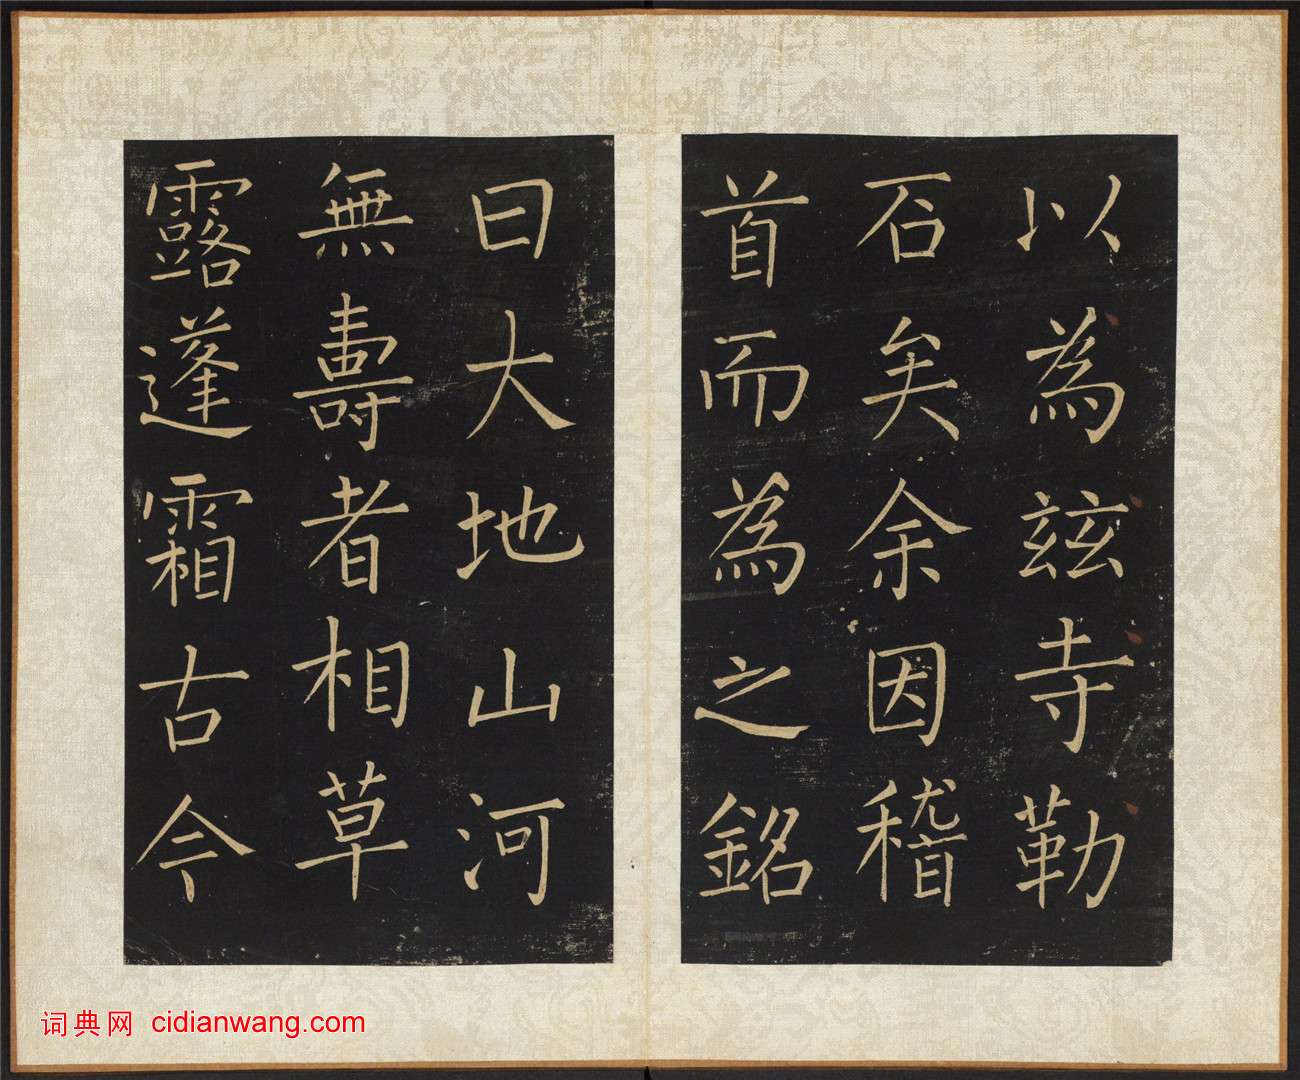 以為茲寺勒
石矣余因稽
首而為之銘
曰大地山河
無壽者相草
露蓬霜古今
词典网 cidianwang.com